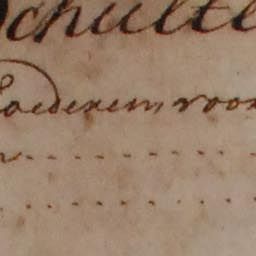 Schulte
Goederen, voor